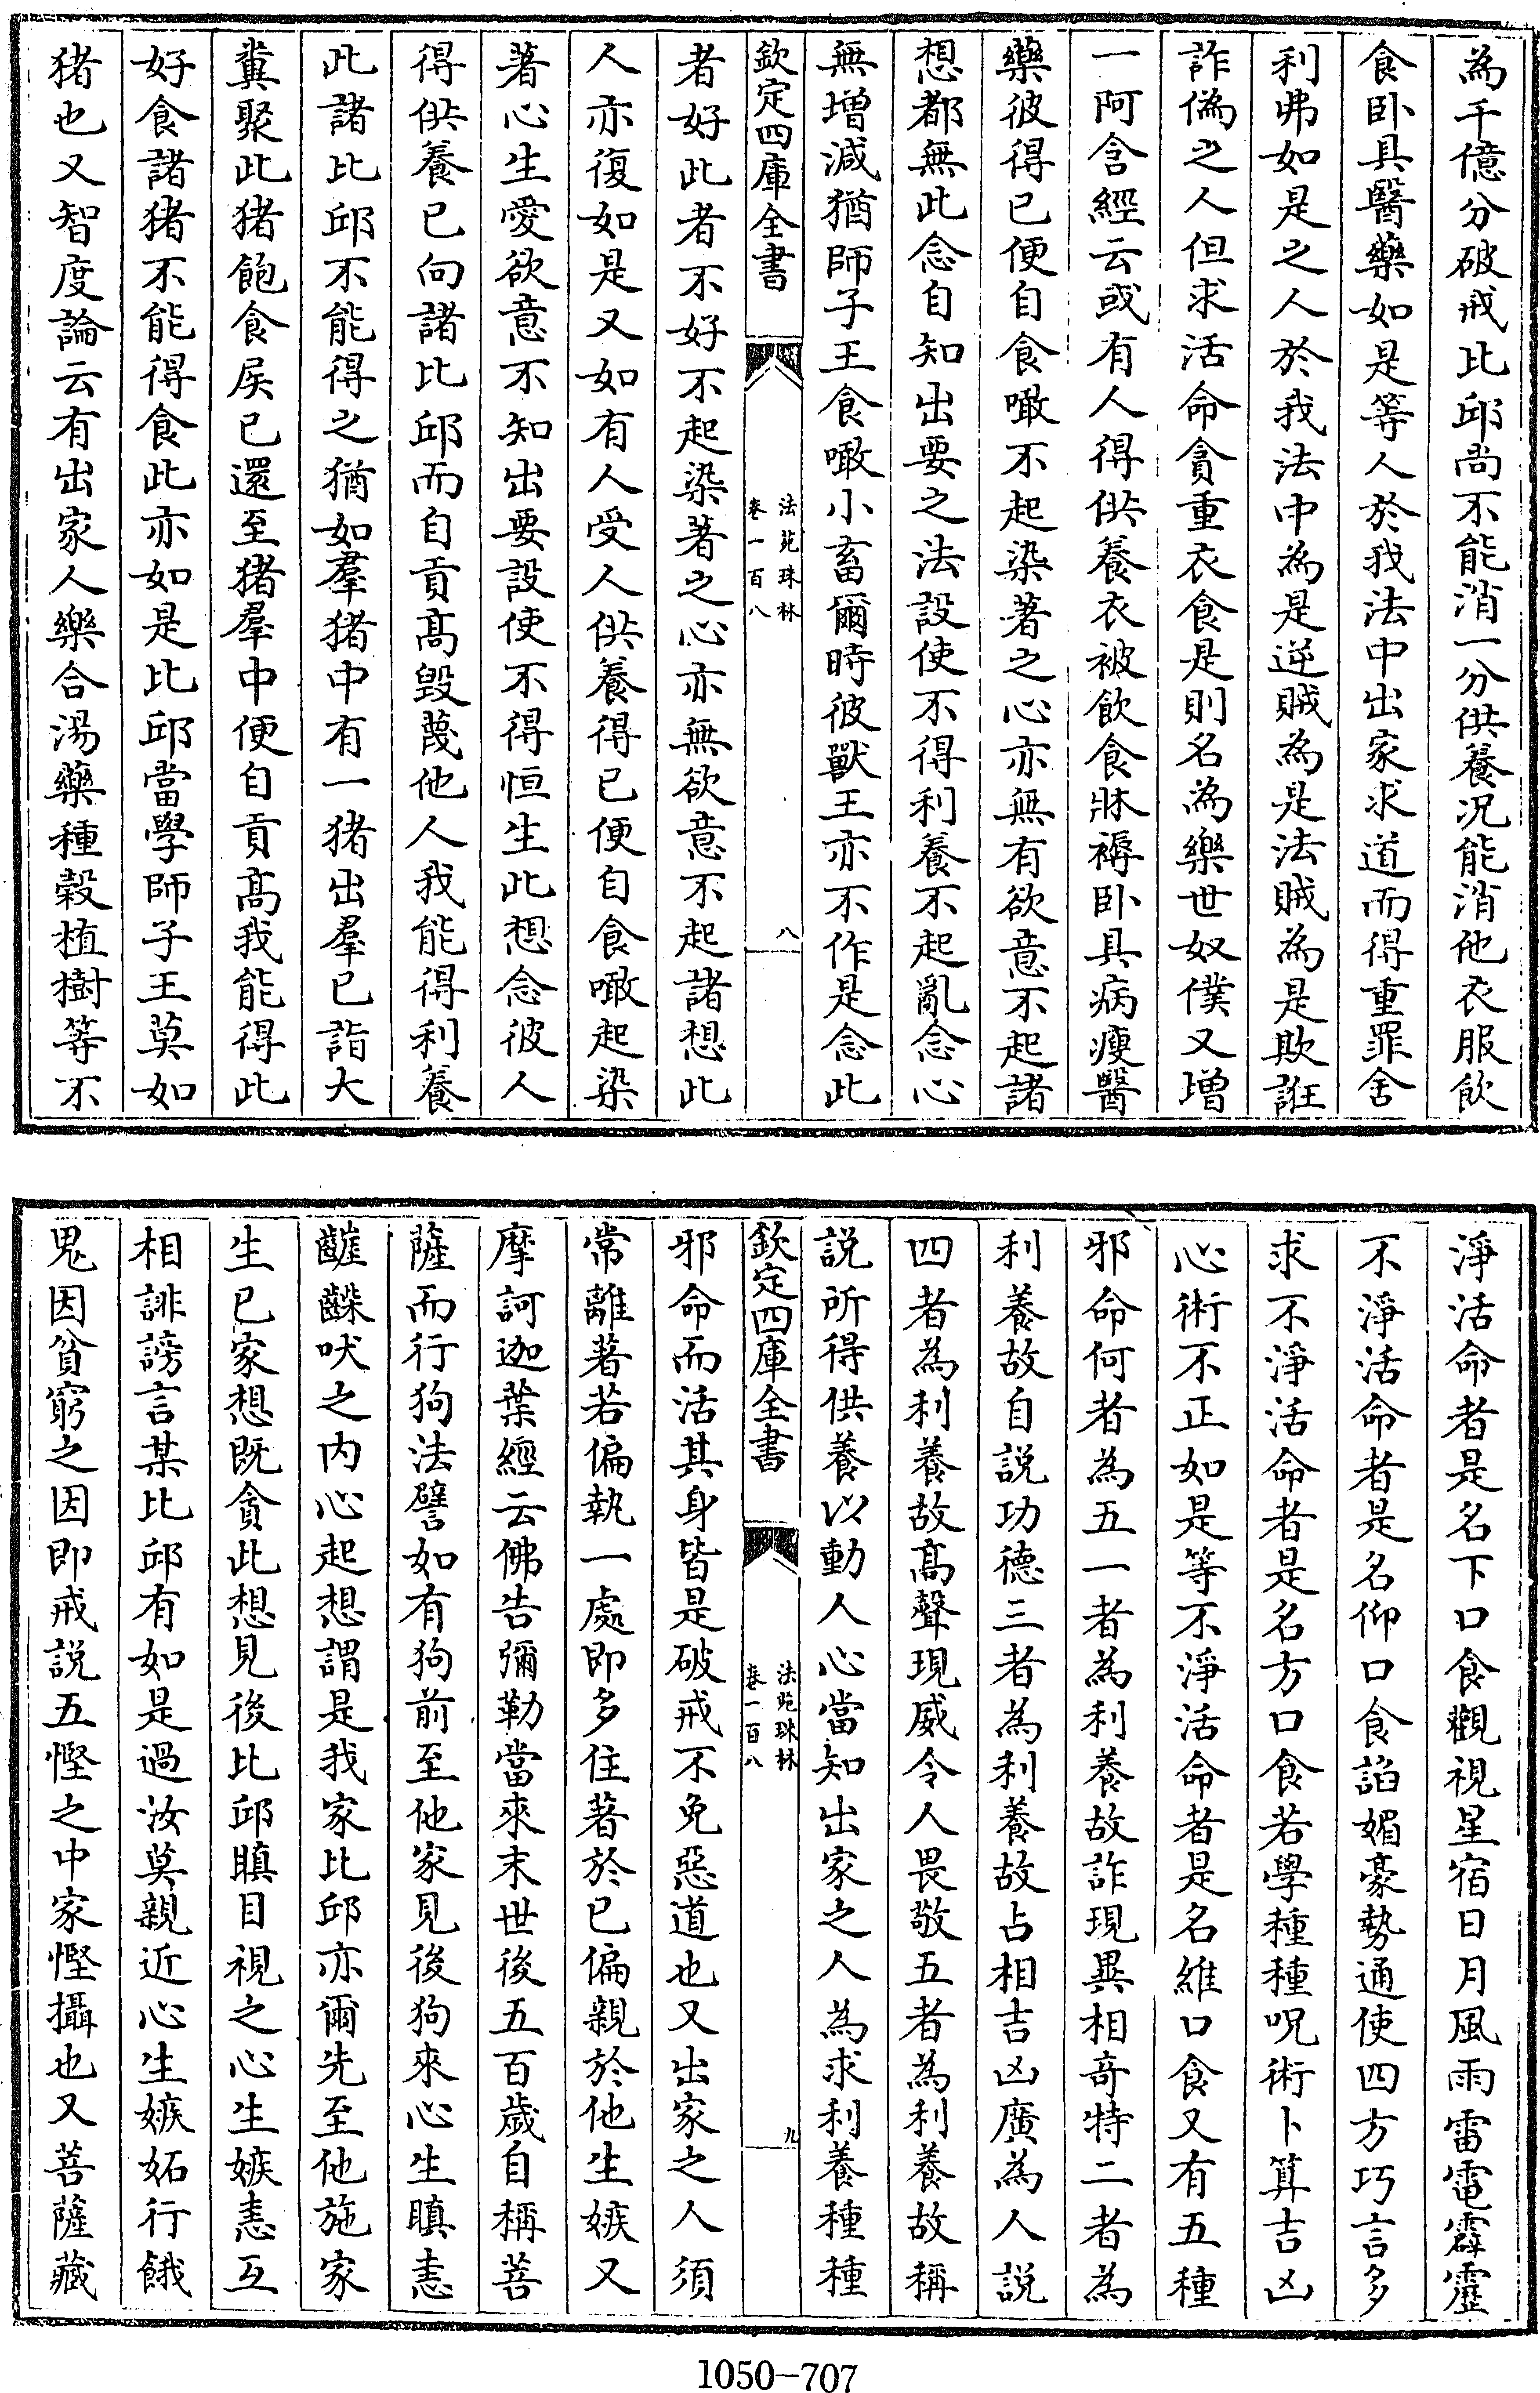 為千億分破戒比邱尚不能消一分供養况能消他衣服飲
食卧具醫藥如是等人於我法中出家求道而得重罪舍
利弗如是之人於我法中為是逆賊為是法賊為是欺誑
詐偽之人但求活命貪重衣食是則名為樂世奴僕又增
一阿含經云或有人得供養衣被飲食牀褥卧具病瘦醫
藥彼得已便自食噉不起染著之心亦無有欲意不起諸
想都無此念自知出要之法設使不得利養不起亂念心
無增減猶師子王食噉小畜爾時彼獸王亦不作是念此
欽定四庫全書
法苑珠林
卷一百八
八
者好此者不好不起染著之心亦無欲意不起諸想此
人亦復如是又如有人受人供養得已便自食噉起染
著心生愛欲意不知出要設使不得恒生此想念彼人
得供養已向諸比邱而自貢髙毀蔑他人我能得利養
此諸比邱不能得之猶如羣猪中有一猪出羣已詣大
糞聚此猪飽食屎已還至猪羣中便自貢髙我能得此
好食諸猪不能得食此亦如是比邱當學師子王莫如
猪也又智度論云有出家人樂合湯藥種榖植樹等不
淨活命者是名下口食觀視星宿日月風雨雷電霹靂
不淨活命者是名仰口食諂媚豪勢通使四方巧言多
求不淨活命者是名方口食若學種種呪術卜算吉凶
心術不正如是等不淨活命者是名維口食又有五種
邪命何者為五一者為利養故詐現異相竒特二者為
利養故自說功德三者為利養故占相吉凶廣為人說
四者為利養故髙聲現威令人畏敬五者為利養故稱
說所得供養以動人心當知出家之人為求利養種種
欽定四庫全書
法苑珠林
卷一百八
九
邪命而活其身皆是破戒不免惡道也又出家之人須
常離著若偏執一處即多住著於已偏親於他生嫉又
摩訶迦葉經云佛告彌勒當來末世後五百歲自稱菩
薩而行狗法譬如有狗前至他家見後狗來心生瞋恚
齜齩吠之内心起想謂是我家比邱亦爾先至他施家
生已家想既貪此想見後比邱瞋目視之心生嫉恚互
相誹謗言某比邱有如是過汝莫親近心生嫉妬行餓
鬼因貧窮之因即戒說五慳之中家慳攝也又菩薩藏
1050-707